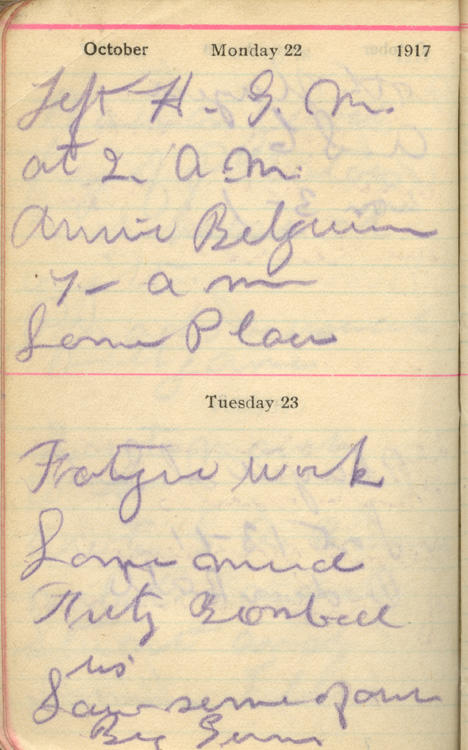 October Monday 22 1917
Left H. G. M.
at 2 A.M.
Arrive Belguim
7 – a m
Some Place
Tuesday 23
Fatigue work
Some mud
Fritz Bombed
us
Saw some of our
Big Guns